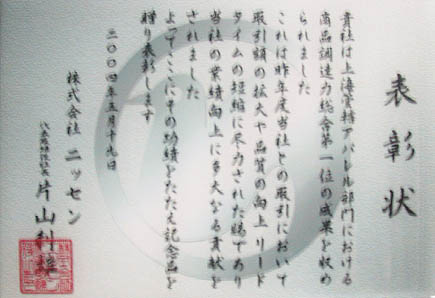 表彰状
貴社は上海管轄アパレル部門における
商品調達力総合第一位の成果を収め
られました
これは昨年度当社との取引において
取引額の拡大や品質の向上リード
タイムの短縮に尽力された賜であり
当社の業績向上に多大なる貢献を
されました
よってここにその功績をたたえ記念品を
贈り表彰します
二〇〇四年五月十九日
株式会社 ニッセン
代表取締役社長 片山利雄